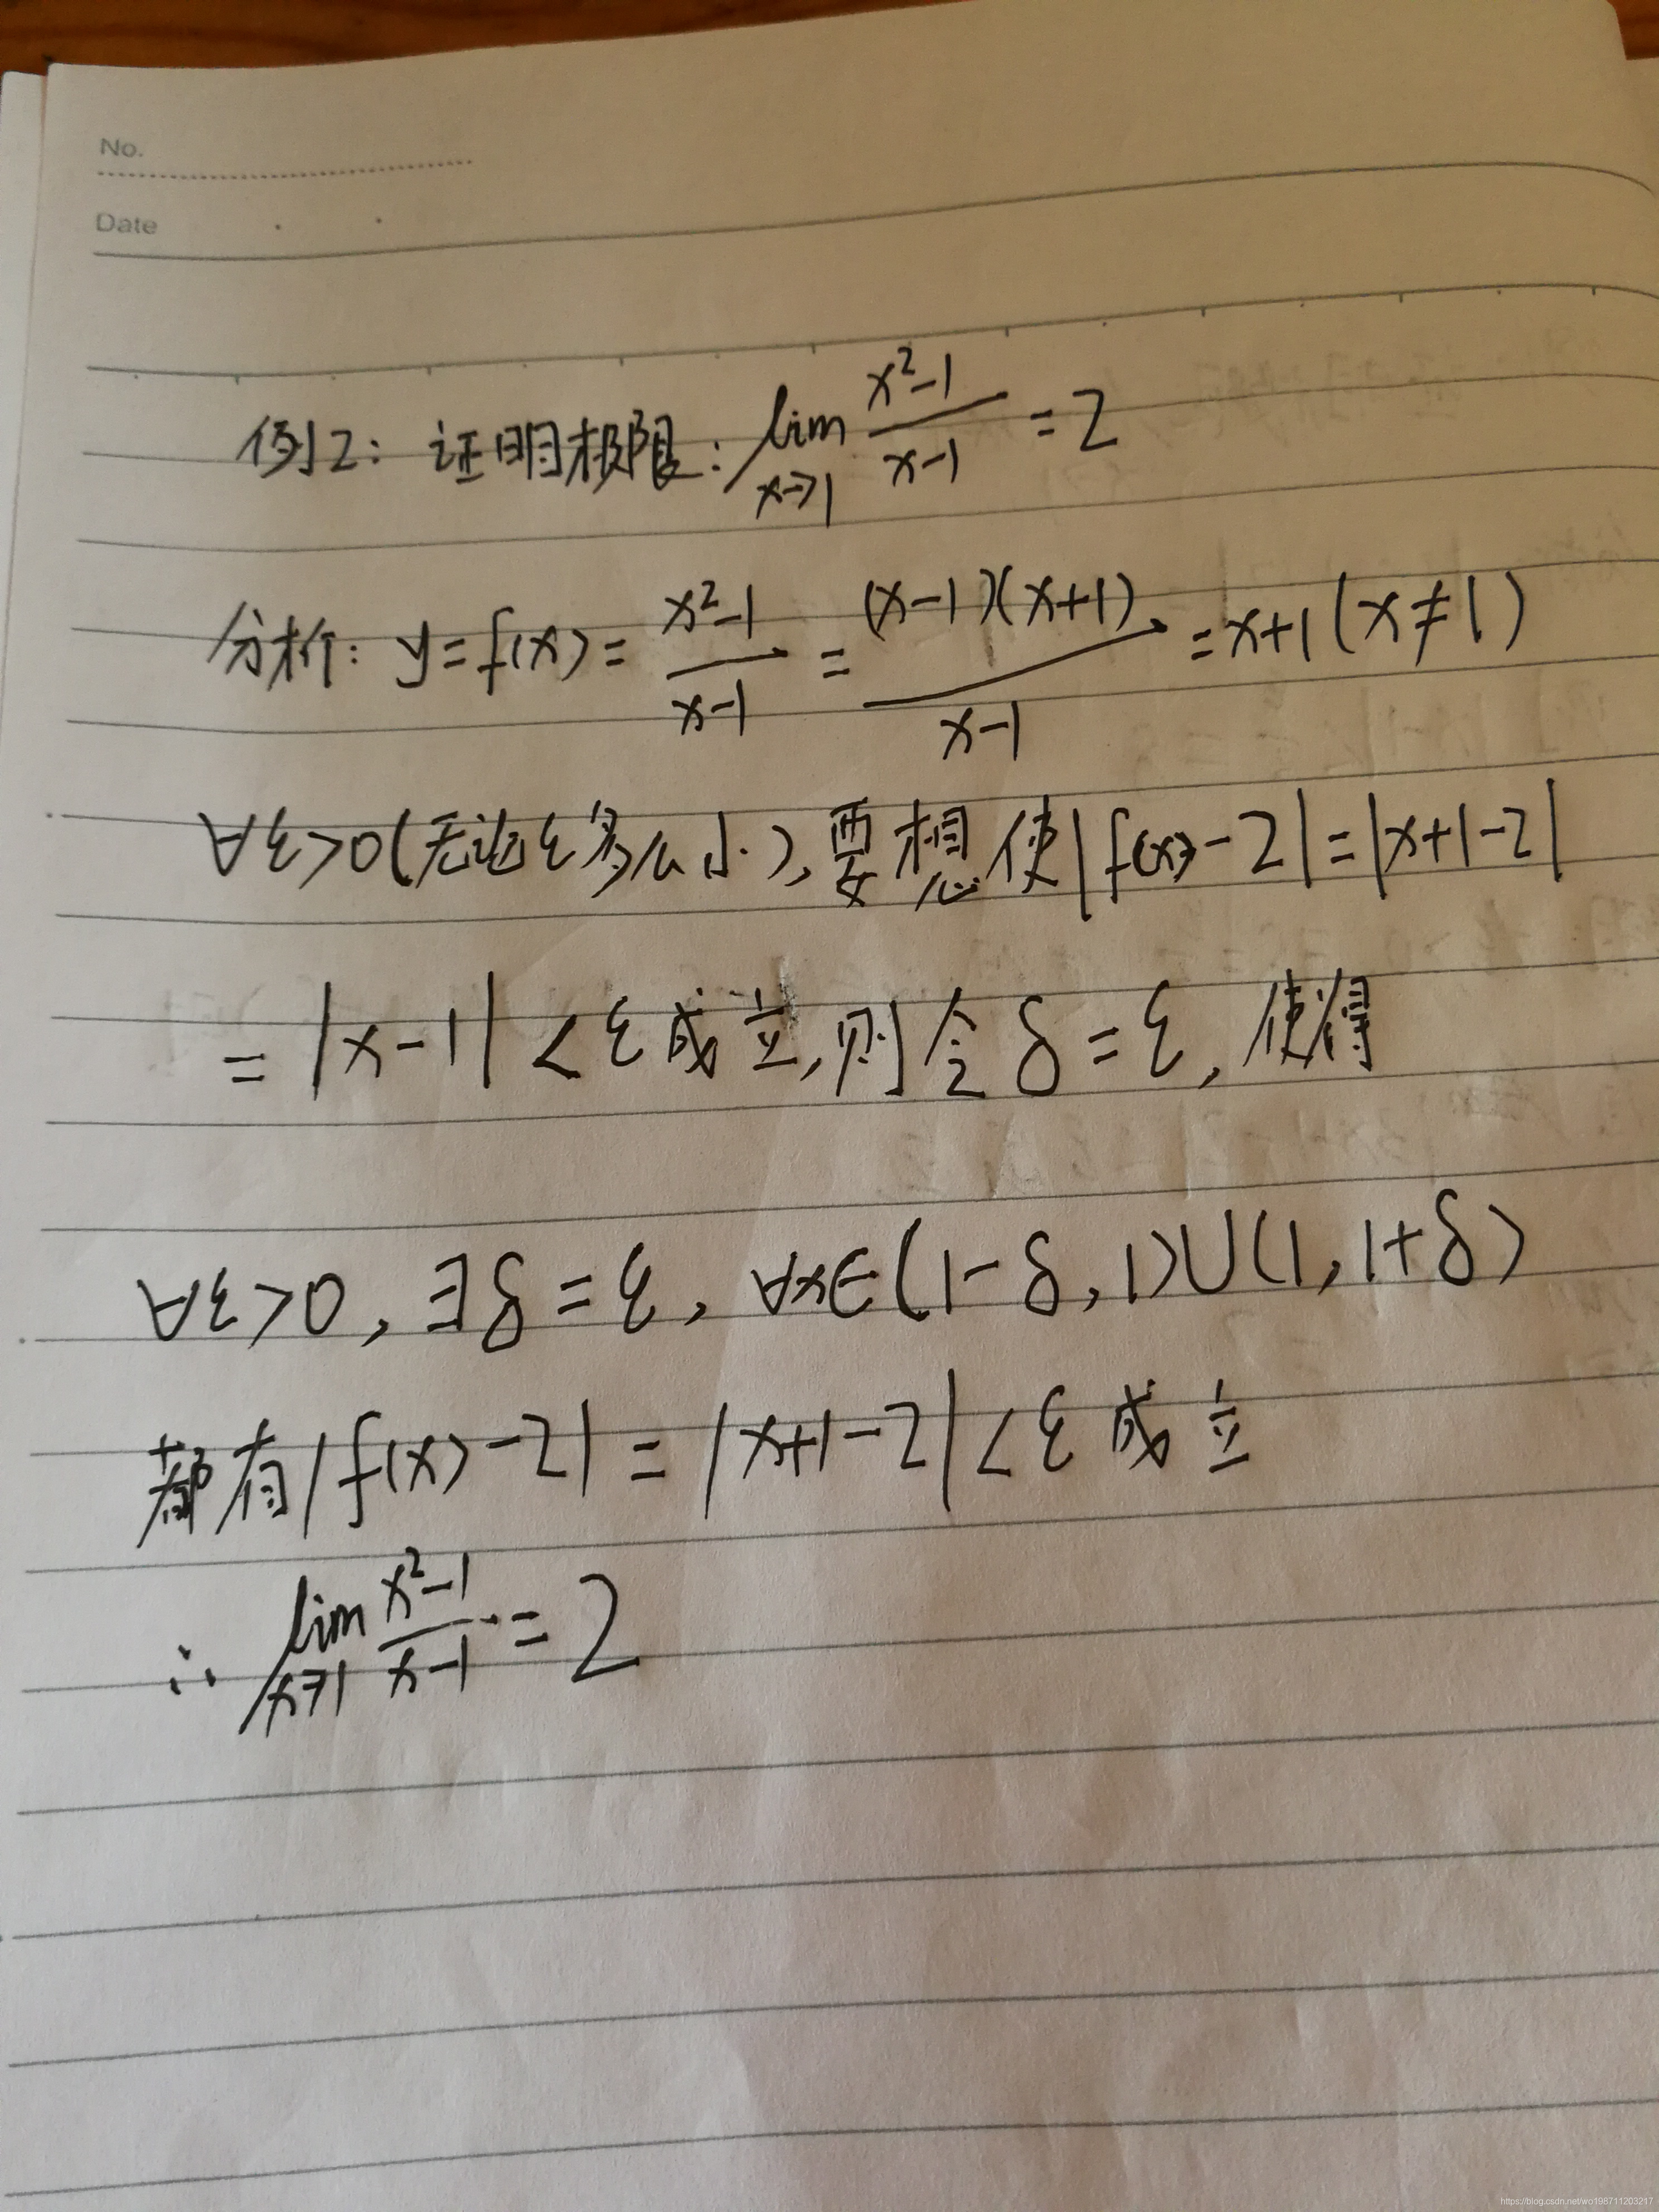 No.
Date
例2: 证明极限: lim x→1 (x²-1)/(x-1) = 2
分析: y=f(x)= (x²-1)/(x-1) = (x-1)(x+1)/(x-1) = x+1 (x≠1)
∀ε>0(无论ε多么小), 要想使|f(x)-2|=|x+1-2|
= |x-1| <ε成立, 则令δ=ε, 使得
∀ε>0, ∃δ=ε, ∀x∈(1-δ,1)∪(1,1+δ)
都有|f(x)-2| = |x+1-2| <ε 成立
∴ lim x→1 (x²-1)/(x-1) = 2
https://blog.csdn.net/wo198711203217